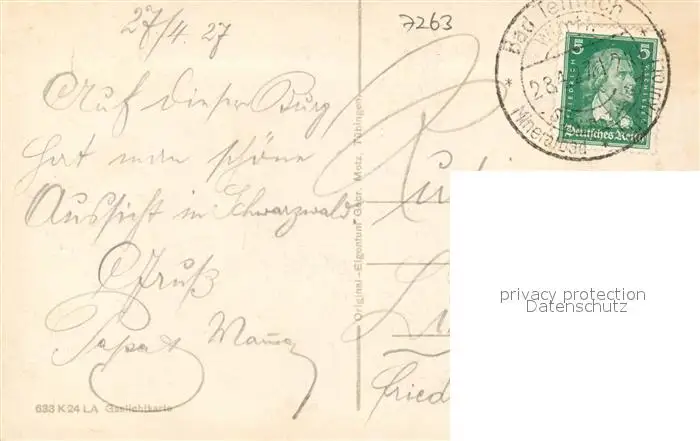 27/4. 27
7263
Auf dieser Burg
hat man schöne
Aussicht in Schwarzwald
Gruß
Papa & Mama
633 K 24 LA Gaslichtkarte
Original-Eigentum Gebr. Metz, Tübingen
Bad Teinach
Württ.
28.4.
Mineralbad
5 5
FRIEDRICH V. SCHILLER
Deutsches Reich
privacy protection
Datenschutz